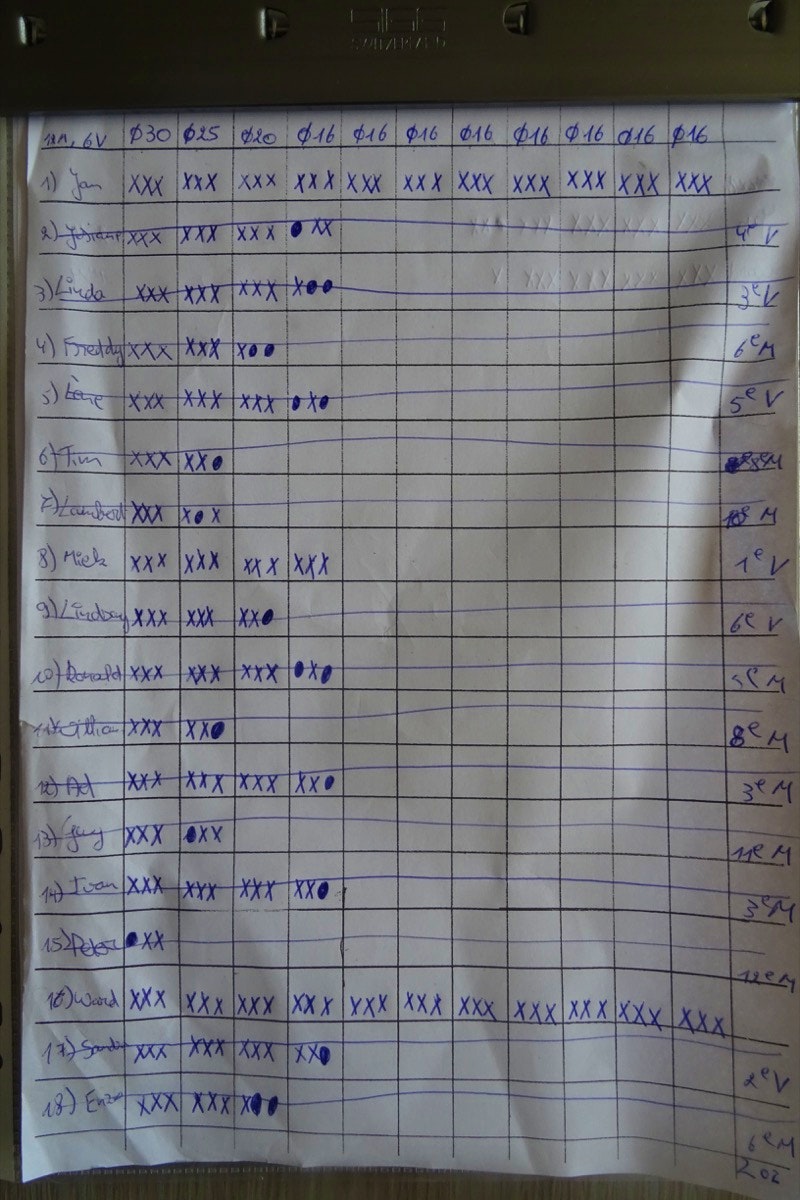 SISS
SWITZERLAND
12M, 6V Ø30 Ø25 Ø20 Ø16 Ø16 Ø16 Ø16 Ø16 Ø16 Ø16 Ø16
1) Jan XXX XXX XXX XXX XXX XXX XXX XXX XXX XXX XXX
2) XXX XXX XXX ●XX 4e V
3) Linda XXX XXX XXX X●● 3e V
4) Freddy XXX XXX X●● 6e M
5) Lène XXX XXX XXX ●X● 5e V
6) Tim XXX XX● 8e M
7) Lambert XXX X●X 10e M
8) Miek XXX XXX XXX XXX 1e V
9) Lindsay XXX XXX XX● 6e V
10) Ronald XXX XXX XXX ●X● 5e M
11) XXX XX● 8e M
12) Ad XXX XXX XXX XX● 3e M
13) XXX ●XX 11e M
14) Ivan XXX XXX XXX XX● 3e M
15) Peter ●XX 12e M
16) Ward XXX XXX XXX XXX XXX XXX XXX XXX XXX XXX XXX
17) XXX XXX XXX XX● 2e V
18) Enzo XXX XXX X●● 6e M